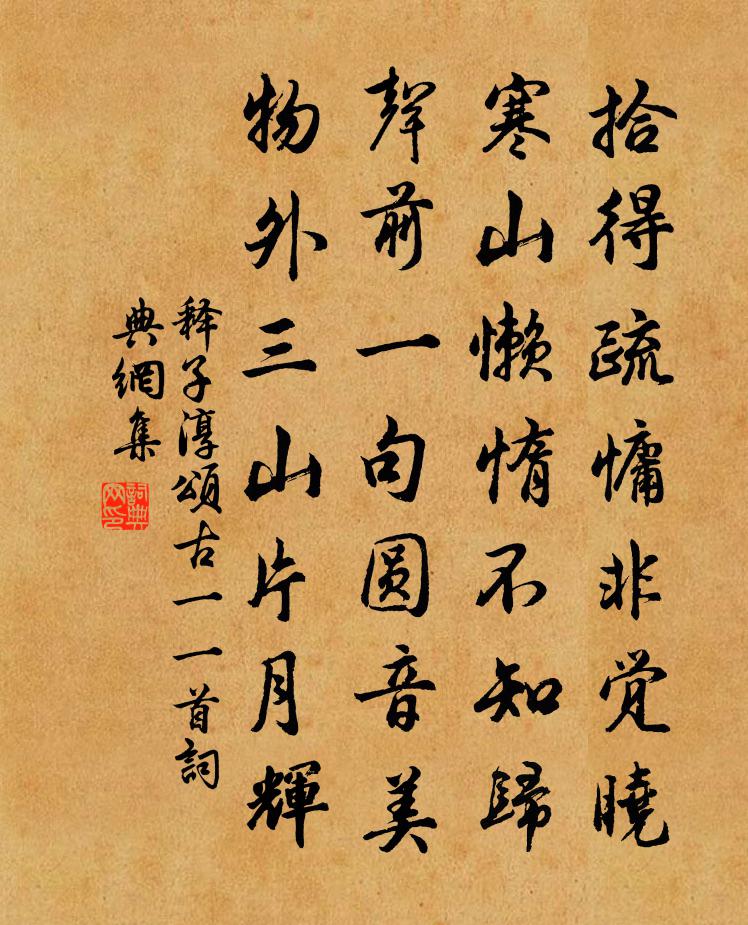 拾得疏慵非觉曉
寒山懒惰不知歸
聲前一句圆音美
物外三山片月輝
释子淳頌古一一首詞
典網集
詞典网印